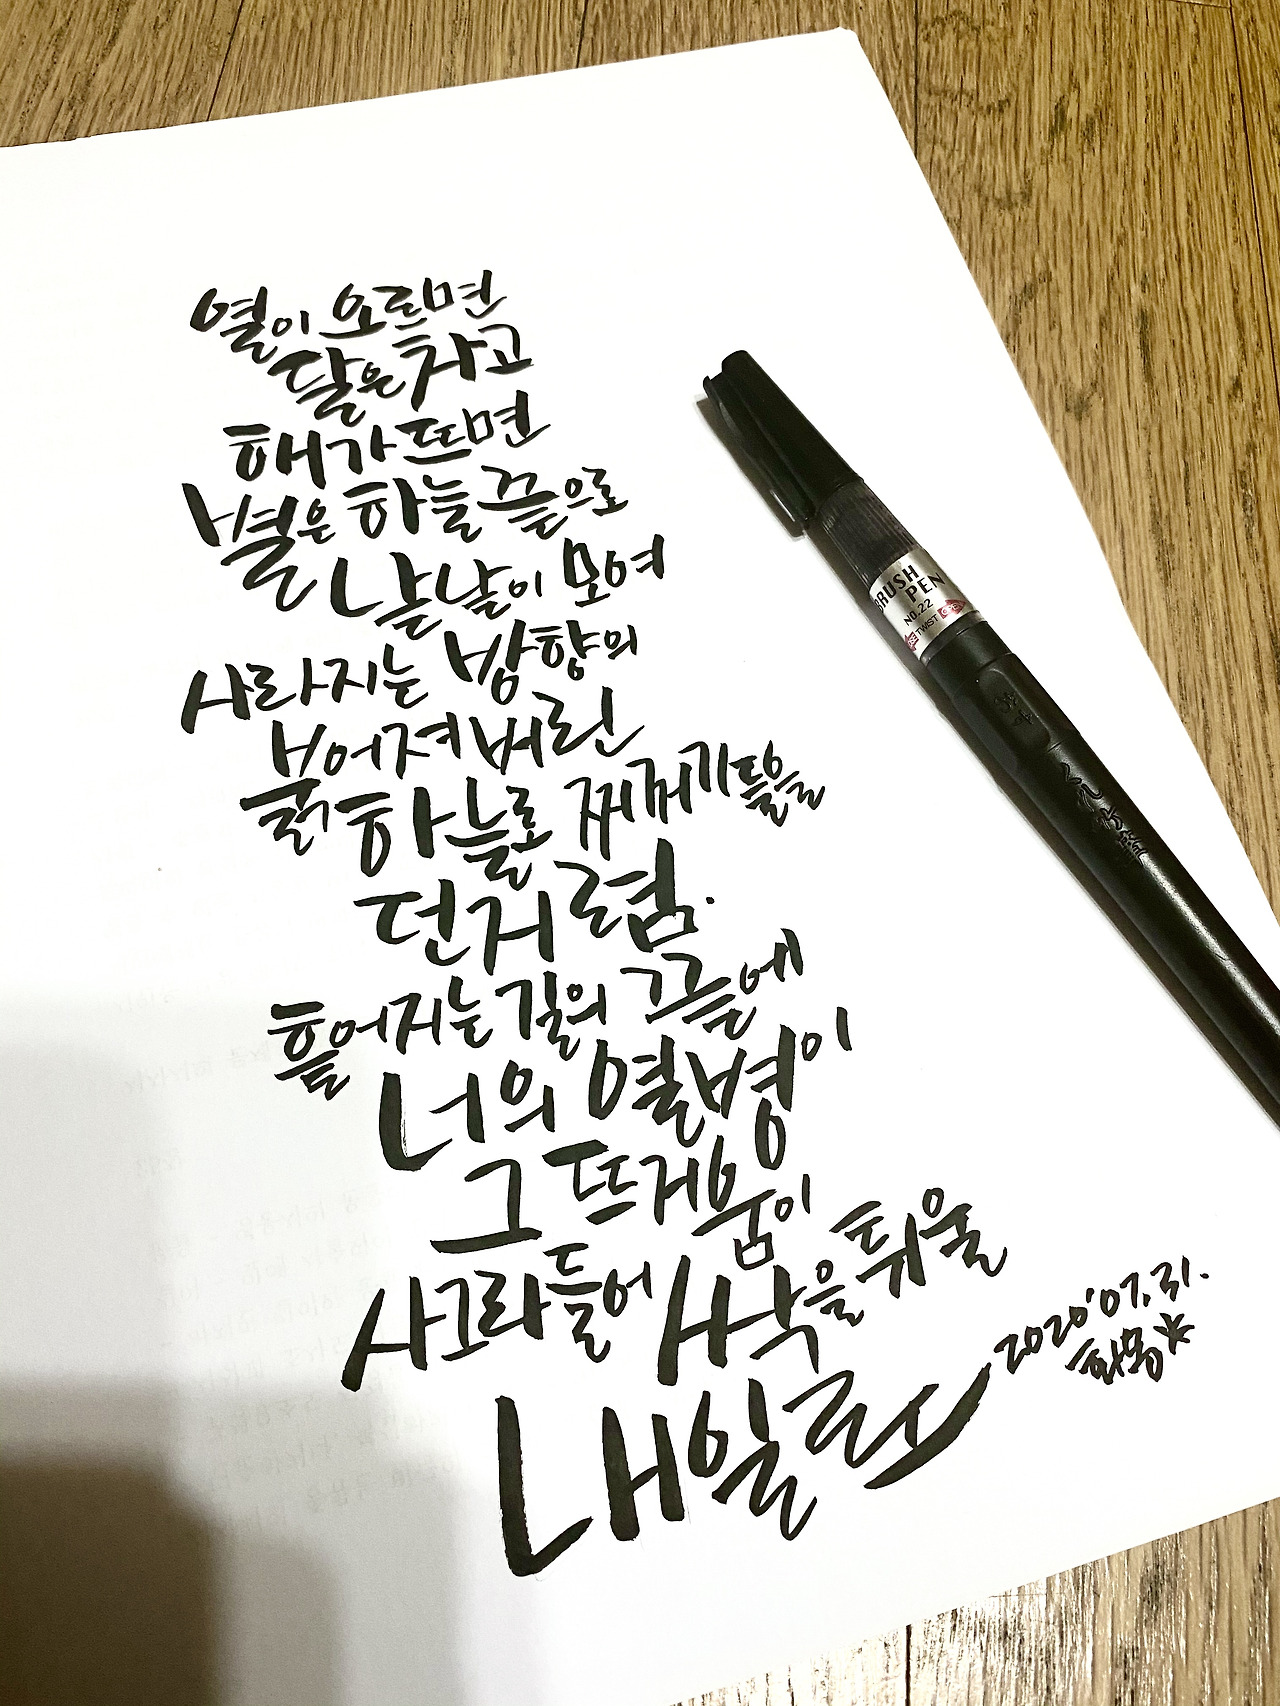 열이 오르면
달은 차고
해가 뜨면
별은 하늘 끝으로
낱낱이 모여
사라지는 방향의
붉어져버린
하늘로 찌꺼기들을
던지렴.
흩어지는 길의 끝에
너의 열병이
그 뜨거움이
사그라들어 싹을 틔울
내일로
2020'07.31.
BRUSH
PEN
NO.22
TWIST